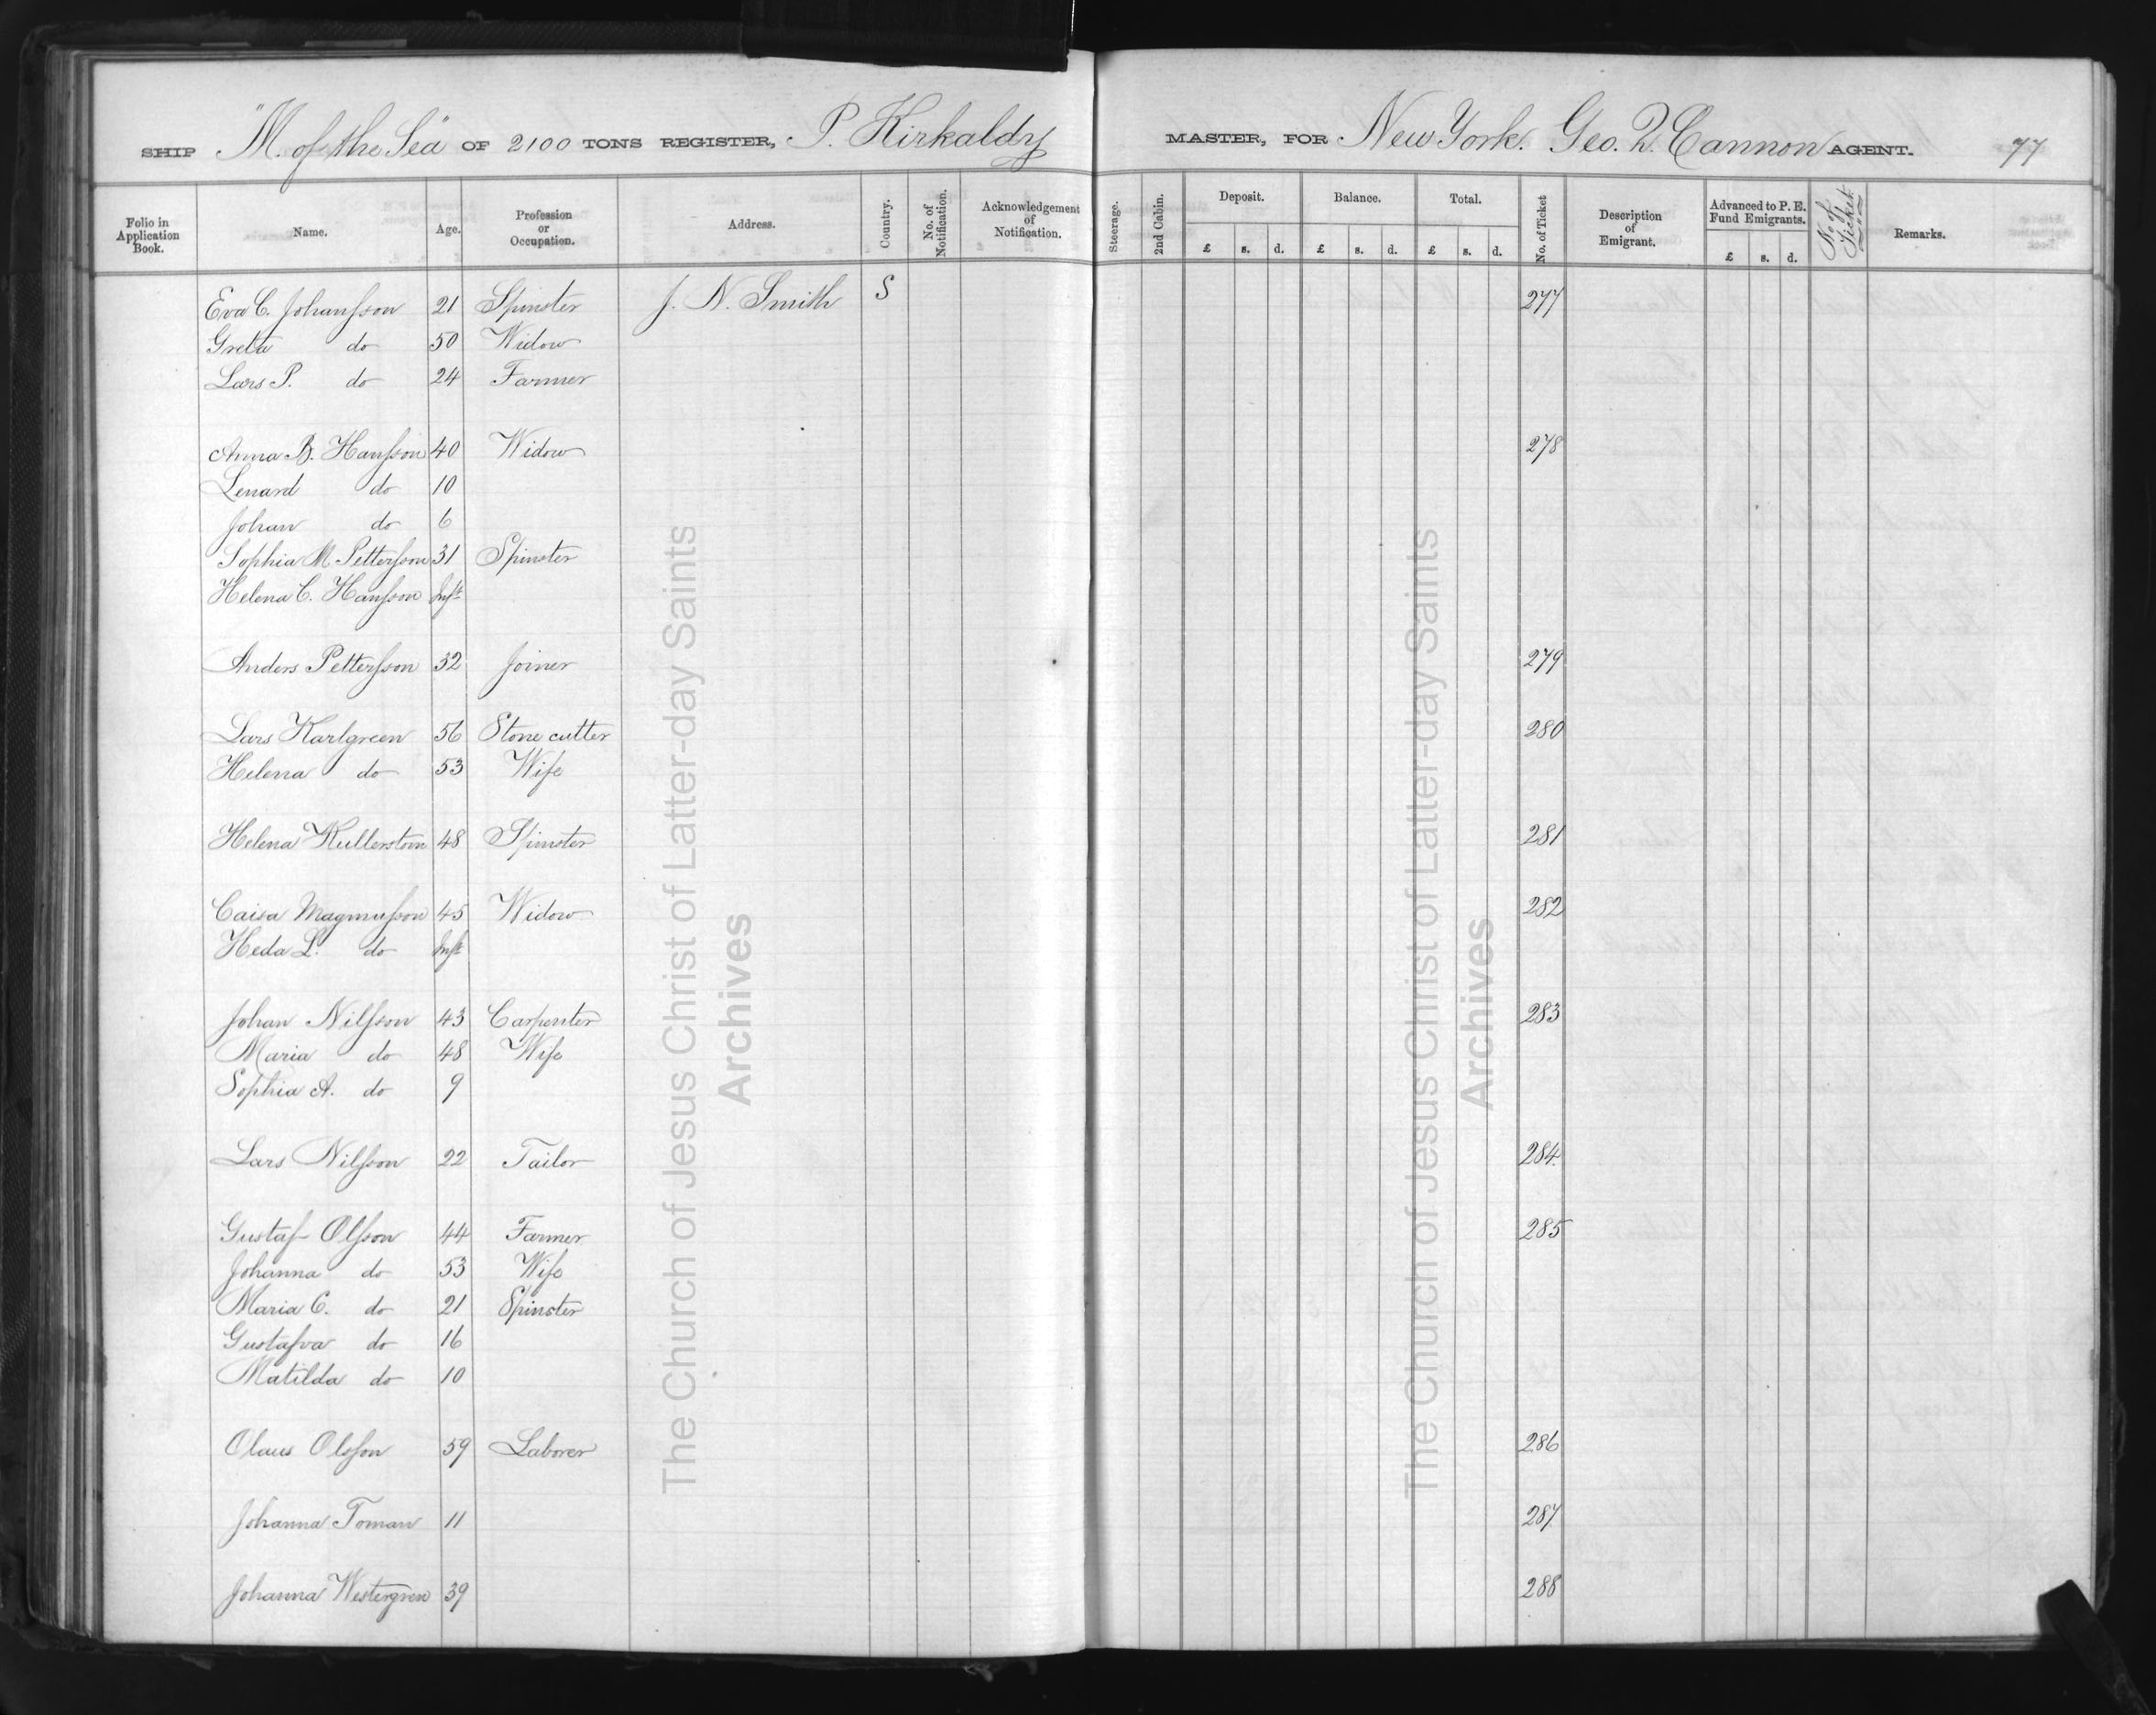 SHIP "M. of the Sea" OF 2100 TONS REGISTER, P. Kirkaldy MASTER, FOR New York. Geo. Q. Cannon AGENT. 77
Folio in Application Book. Name. Age. Profession or Occupation. Address. Country. No. of Notification. Acknowledgement of Notification. Steerage. 2nd Cabin. Deposit. £ s. d. Balance. £ s. d. Total. £ s. d. No. of Ticket Description of Emigrant. Advanced to P. E. Fund Emigrants. £ s. d. No of Ticket Remarks.
Eva C. Johansson 21 Spinster J. N. Smith S 277
Greta do 50 Widow
Lars P. do 24 Farmer
Anna B. Hansson 40 Widow 278
Lenard do 10
Johan do 6
Sophia M Pettersson 31 Spinster
Helena C. Hansson Inft
Anders Pettersson 32 Joiner 279
Lars Karlgreen 56 Stone cutter 280
Helena do 53 Wife
Helena Kullerstom 48 Spinster 281
Caisa Magnusson 45 Widow 282
Heda L. do Inft
Johan Nilsson 43 Carpenter 283
Maria do 48 Wife
Sophia A. do 9
Lars Nilsson 22 Tailor 284
Gustaf Olsson 44 Farmer 285
Johanna do 53 Wife
Maria C. do 21 Spinster
Gustafva do 16
Matilda do 10
Olaus Olsson 59 Laborer 286
Johanna Toman 11 287
Johanna Westergren 39 288
The Church of Jesus Christ of Latter-day Saints
Archives
The Church of Jesus Christ of Latter-day Saints
Archives